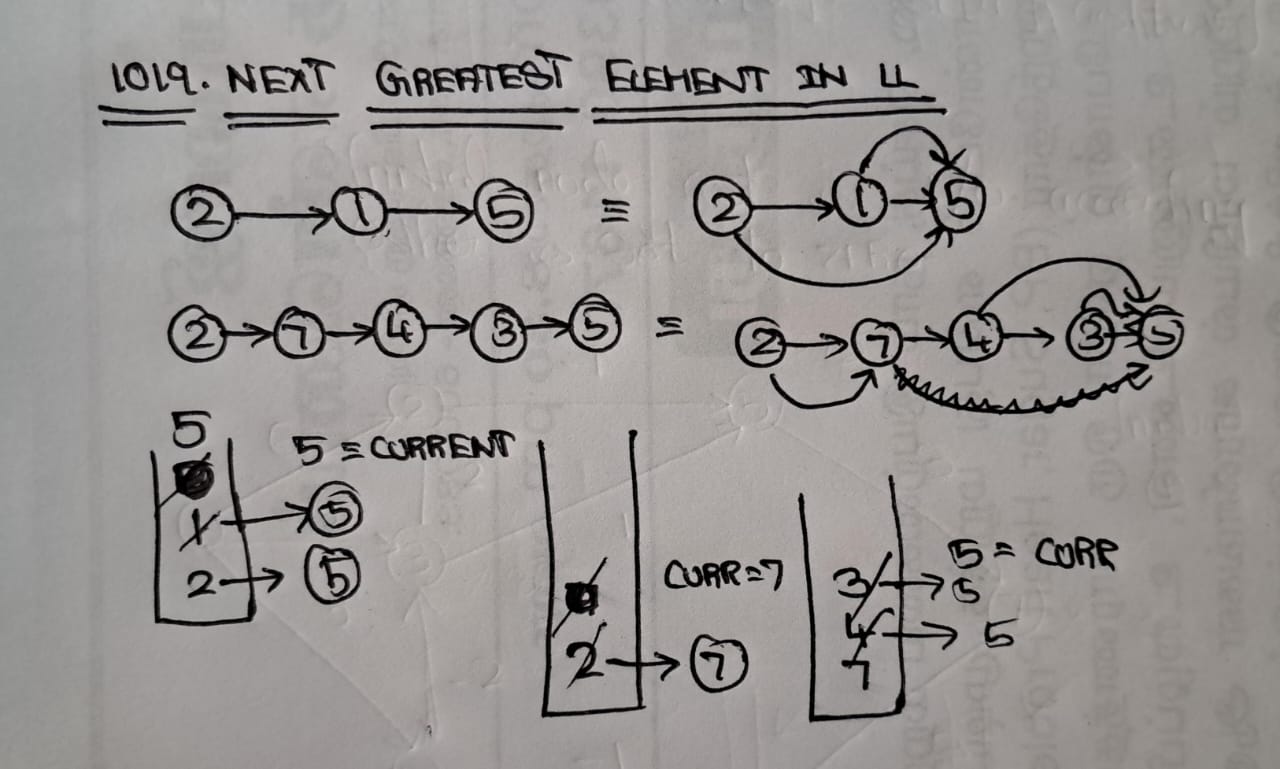 1019. NEXT GREATEST ELEMENT IN LL
2 → 1 → 5 ≡ 2 → 1 → 5
2 → 7 → 4 → 3 → 5 ≡ 2 → 7 → 4 → 3 → 5
5
5 ≡ CURRENT
1 → 5
2 → 5
CURR=7
2 → 7
5 = CURR
3 → 5
4 → 5
7